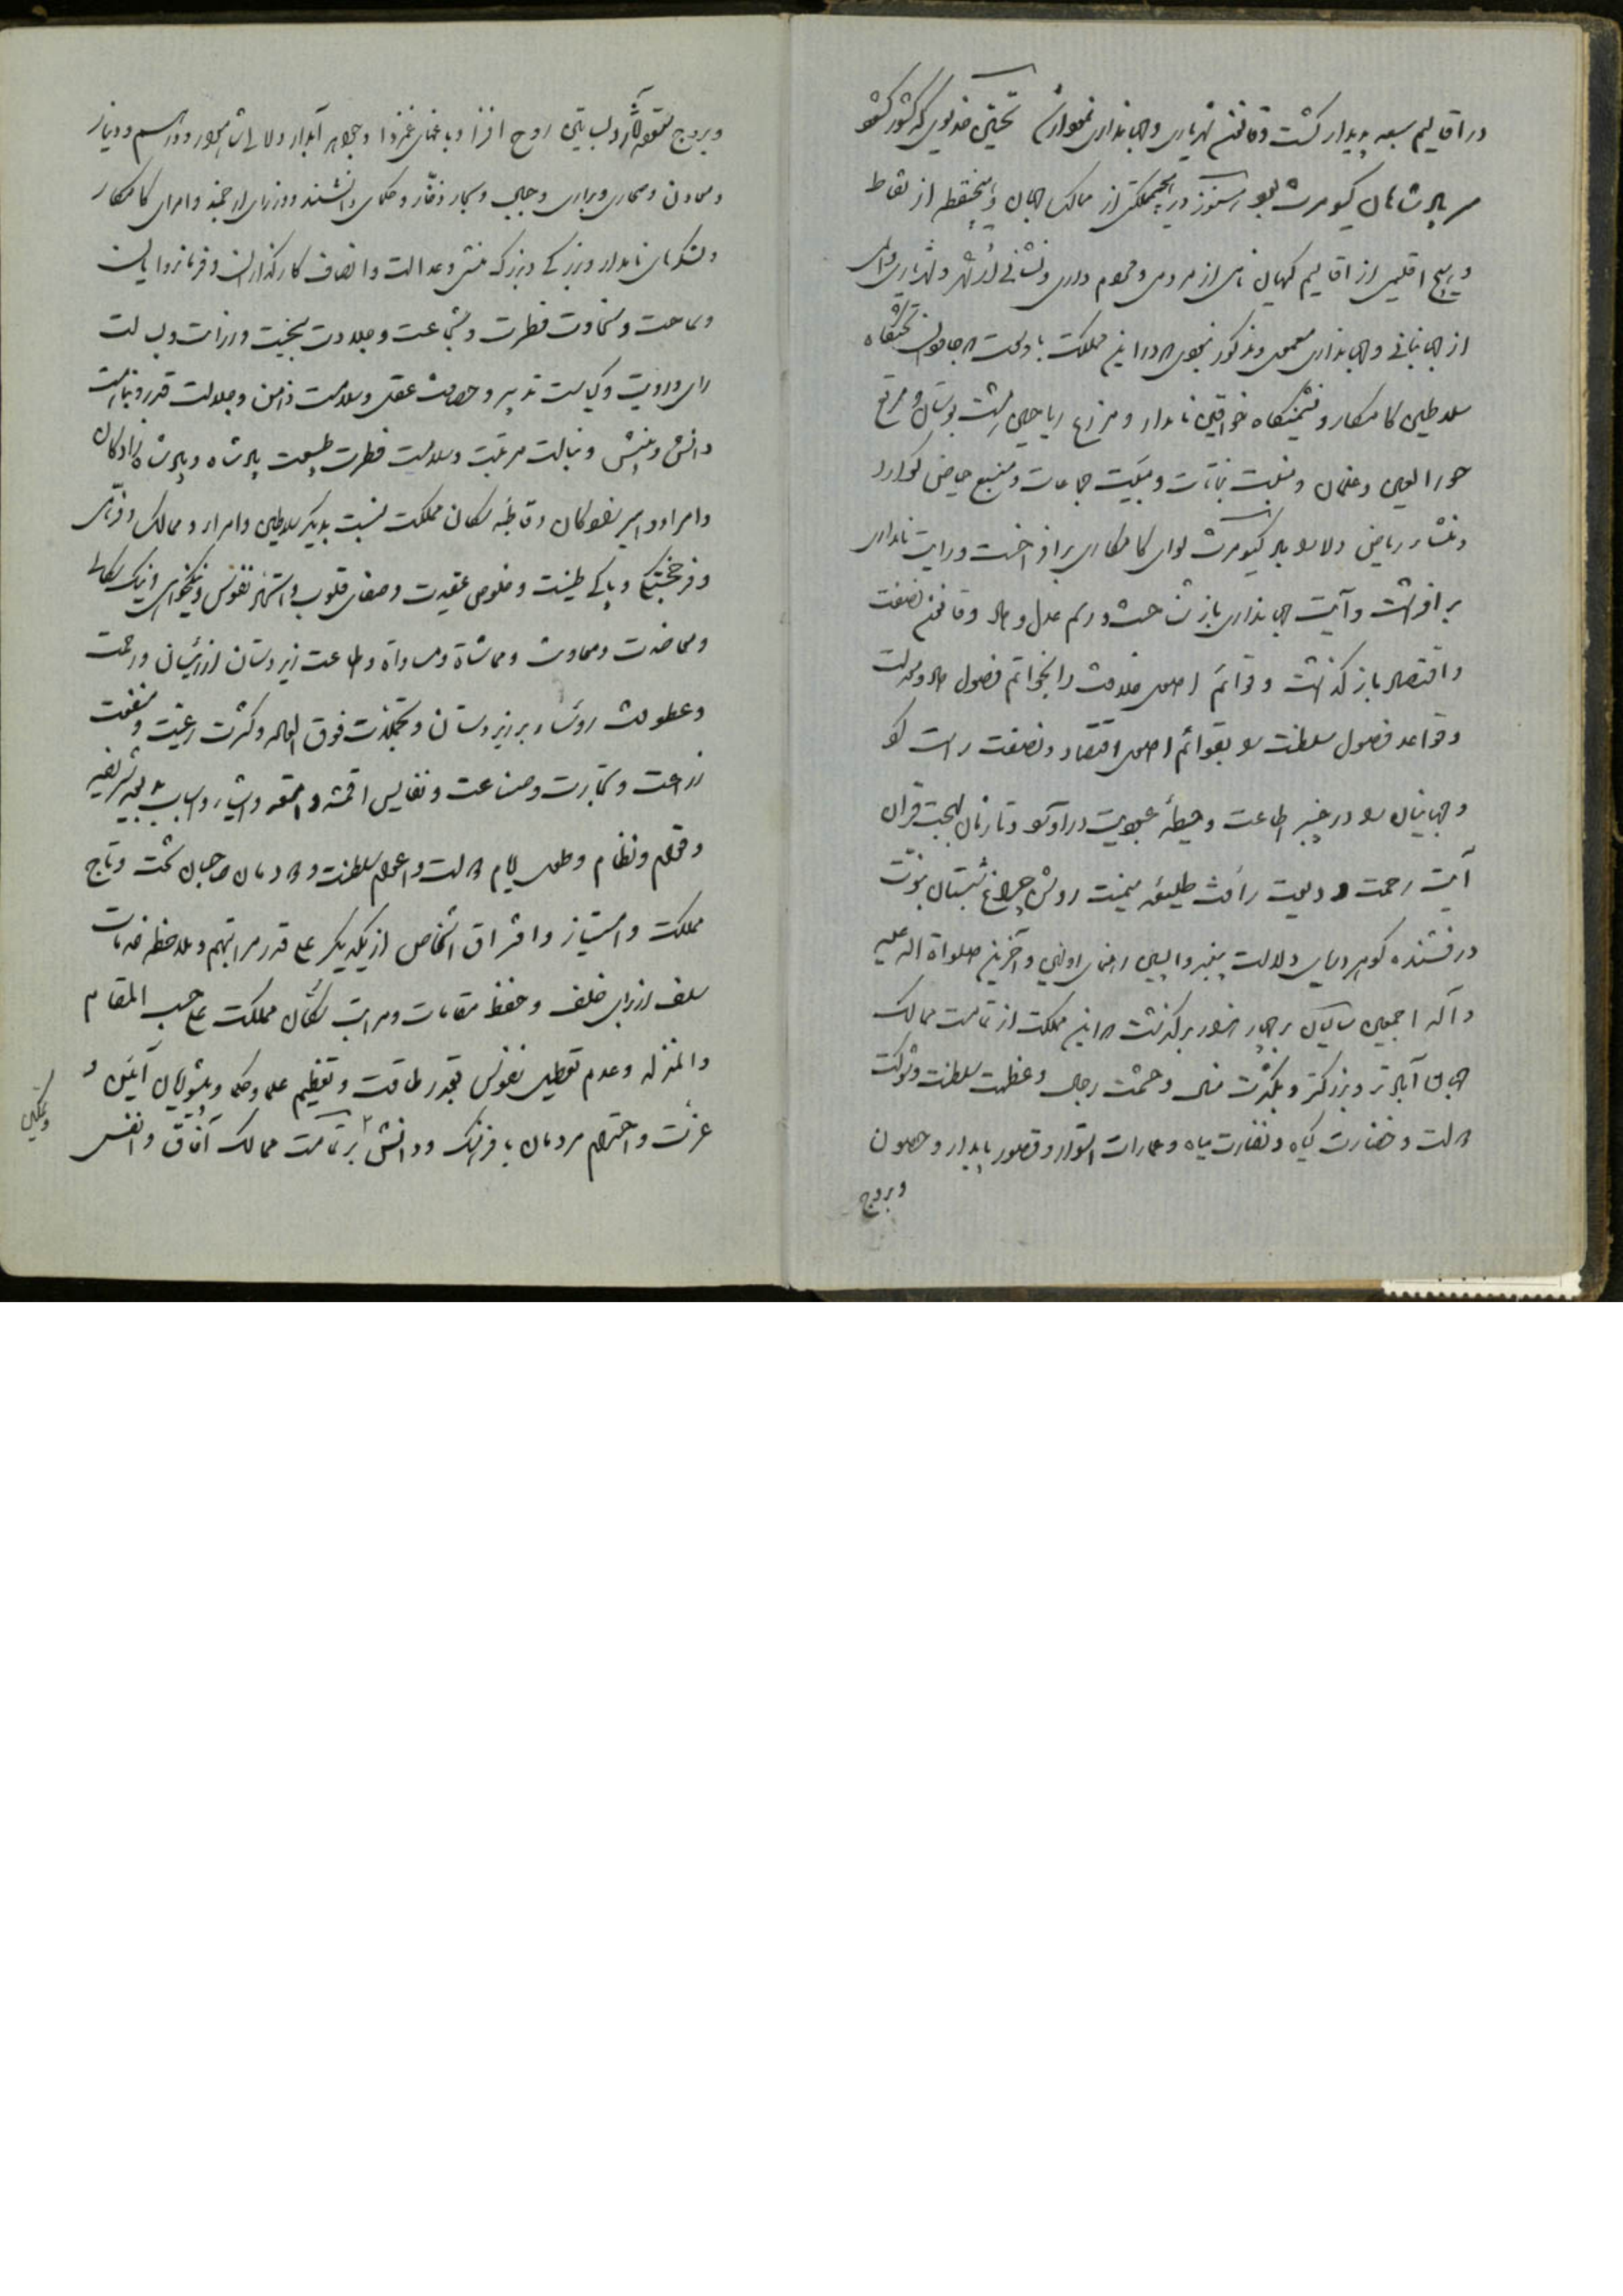 در اقالیم سبعه پدیدار گشت و قانون شهریاری و جهانداری نمودار نخستین خدیوی که کشور گشود
سر پادشاهان کیومرث بود هنوز در هیچ مملکتی از ممالک جهان و هیچ نقطه از نقاط
و هیچ اقلیمی از اقالیم کیهان نامی از مردمی و مردم داری و نشانی از شهر و شهریاری و
از جهانبانی و جهانداری معمول و مذکور نبود که در این مملکت با وسعت که تختگاه
سلاطین کامکار و نشیمنگاه خواقین نامدار و مزرع ریاحین بهشت بوستان و مرتع
حور العین و غلمان و منبت نباتات و منبع حیاض گوارا
و منشاء ریاض دلارا بود کیومرث لوای کامکاری بر افراخت و رایت نامداری
بر افراشت و آیت جهانداری باز شناخت و رسم عدل و داد و قانون نصفت
و اقتصاد باز گذاشت و قوائم اصول خلافت را بخواتم فصول داد و معدلت
و قواعد فصول سلطنت را بقوائم اصول اقتصاد و نصفت راست کرد
و جهانیان را در چنبر اطاعت و حیطه عبودیت در آورد و تا زمان بهجت قران
آیت رحمت و دیعت رأفت طلیعه میمنت روشن چراغ شبستان نبوت
درخشنده گوهر دریای دلالت پیغمبر واپسین رهنمای اولین و آخرین صلواة الله علیه
و آله اجمعین سالیان بر چهار هزار بر گذشت که این مملکت از تمامت ممالک
جهان آبادتر و بزرگتر و بکثرت منال و حشمت رجال و عظمت سلطنت و شوکت
دولت و خضارت گیاه و نضارت میاه و عمارات استوار و قصور پایدار و حصون
و بروج
و بروج و بساتین روح افزا و باغهای غمزدا و جواهر آبدار و لالی شاهوار و درهم و دینار
و معادن و صحاری و براری و جبال و بحار ذخار و حکمای دانشمند و وزرای ارجمند و امرای کامکار
و لشکرهای نامدار و بزرگی و بزرگ منشی و عدالت و انصاف کارگذاران و فرمانروایان
و سماحت و سخاوت فطرت و شجاعت و جلادت بخیت و رزانت و بسالت
رای و رویت و کیاست تدبیر و حصافت عقل و سلامت ذهن و جلالت قدر و نباهت
دانش و بینش و نبالت مرتبت و سلامت فطرت طبیعت پادشاه و پادشاه زادگان
و امرا و امیر زادگان و قاطبه سکان مملکت نسبت بدیگر سلاطین و امراء و ممالک و قرای
و فرخجستگی و پاکی طینت و خلوص عقیدت و صفای قلوب و اشتهار نفوس و نیکخواهی و نیک سگالی
و معاضدت و معاونت و مماشاة و مساواة و اطاعت زیردستان از رئیسان و رحمت
و عطوفت روساء بر زیردستان و تجملات فوق العاده و کثرت رعیت و منفعت
زراعت و تجارت و صناعت و نفایس اقمشه و امتعه و اشیاء و اسباب
و قوام و نظام و طول ایام دولت و اعوام سلطنت و دودمان صاحبان تخت و تاج
مملکت و امتیاز و افتراق اشخاص از یکدیگر علی قدر مراتبهم و ملاحظه خدمات
سلف از برای خلف و حفظ مقامات و مراتب سکان مملکت علی حسب المقام
و المنزله و عدم تعطیل نفوس بقدر طاقت و تعظیم علما و حکما و پیشوایان آئین و
عزت و احترام مردمان با فرهنگ و دانش بر تمامت ممالک آفاق و انفس
و تمکین